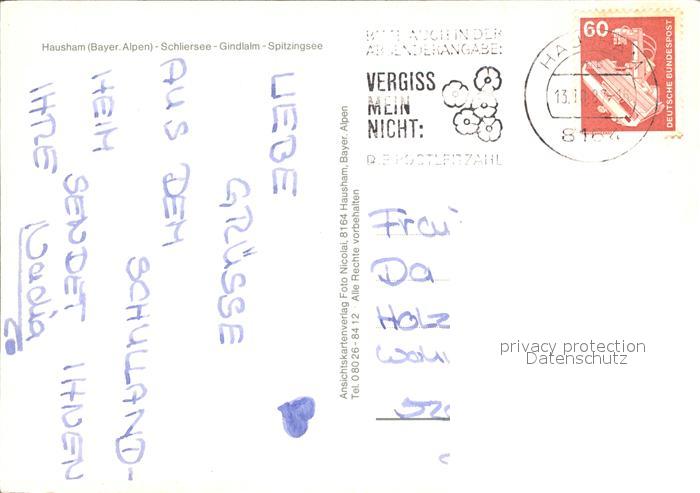 Hausham (Bayer. Alpen) - Schliersee - Gindlalm - Spitzingsee
LIEBE
GRÜSSE
AUS DEM
SCHULLAND-
HEIM
SENDET IHNEN
IHRE
Nadia
Ansichtskartenverlag Foto Nicolai, 8164 Hausham, Bayer. Alpen
Tel. 0 80 26 - 84 12 · Alle Rechte vorbehalten
BITTE AUCH IN DER
ABSENDERANGABE:
VERGISS
MEIN
NICHT:
DIE POSTLEITZAHL
8164
60
DEUTSCHE BUNDESPOST
Frau
Da
Holz
privacy protection
Datenschutz